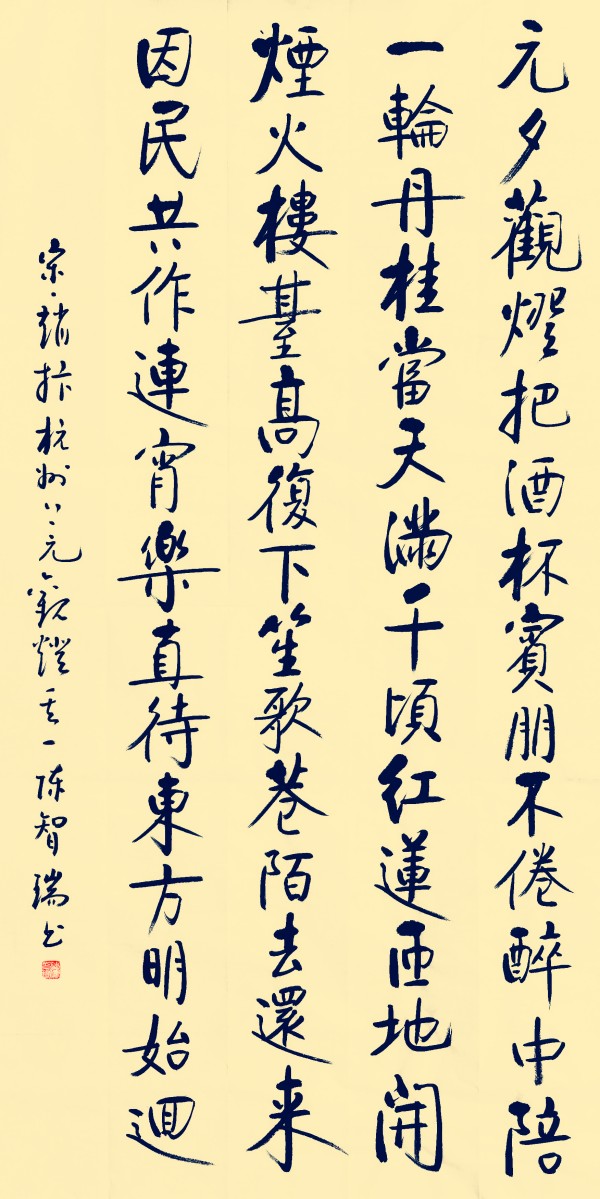 元夕觀燈把酒杯賓朋不倦醉中陪
一輪丹桂當天滿千頃紅蓮匝地開
煙火樓臺高復下笙歌巷陌去還来
因民共作連宵樂直待東方明始迴
宋·趙抃杭州八·元夕觀燈其一陈智瑞书